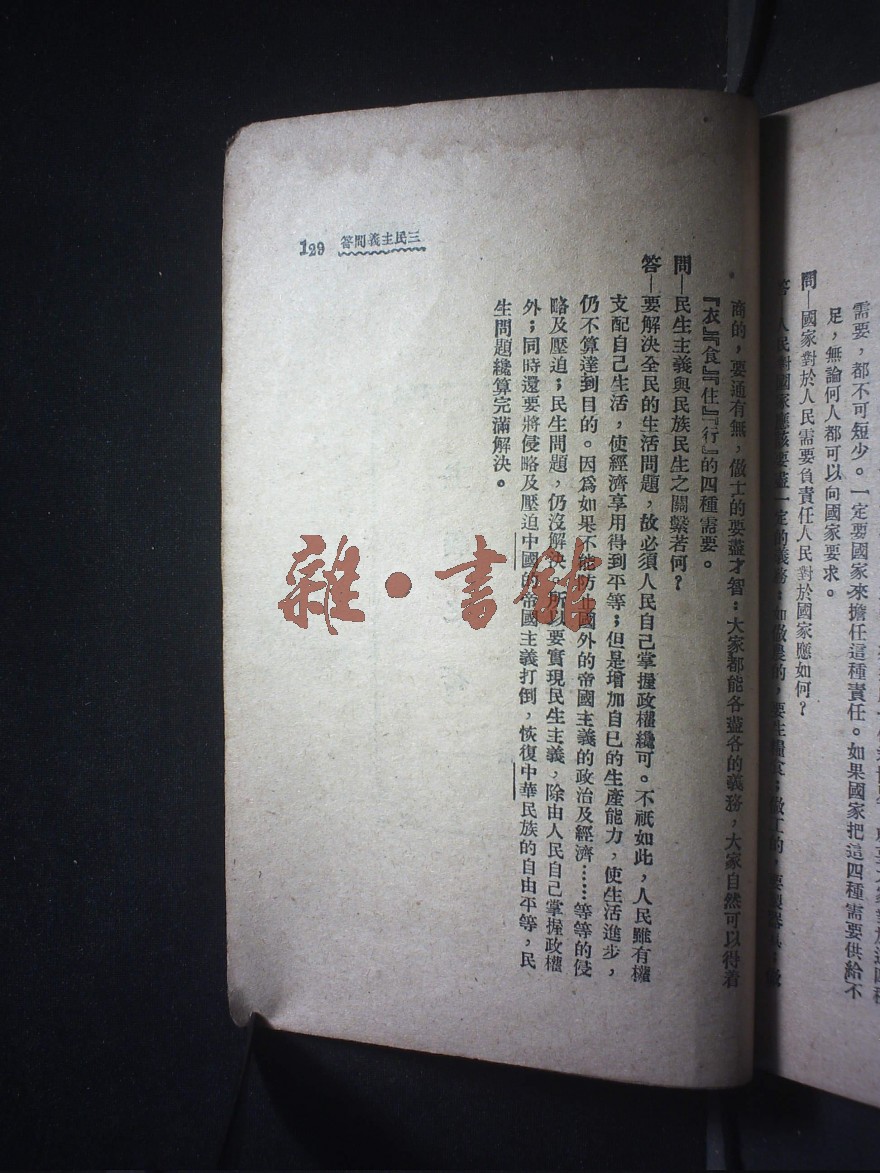 需要，都不可短少。一定要國家來擔任這種責任。如果國家把這四種需要供給不
足，無論何人都可以向國家要求。
問—國家對於人民需要負責任人民對於國家應如何？
答 人民對國家應該要盡一定的義務：如做農的，要生糧食；做工的，要製器具，
商的，要通有無，做士的要盡才智：大家都能各盡各的義務，大家自然可以得着
『衣』『食』『住』『行』的四種需要。
問—民生主義與民族民生之關繫若何？
答—要解決全民的生活問題，故必須人民自己掌握政權纔可。不祇如此，人民雖有權
支配自己生活，使經濟享用得到平等；但是增加自己的生產能力，使生活進步，
仍不算達到目的。因爲如果不能防止國外的帝國主義的政治及經濟……等等的侵
略及壓迫；民生問題，仍沒解決。所以要實現民生主義，除由人民自己掌握政權
外；同時還要將侵略及壓迫中國的帝國主義打倒，恢復中華民族的自由平等，民
生問題纔算完滿解決。
三民主義問答
129
雜·書館